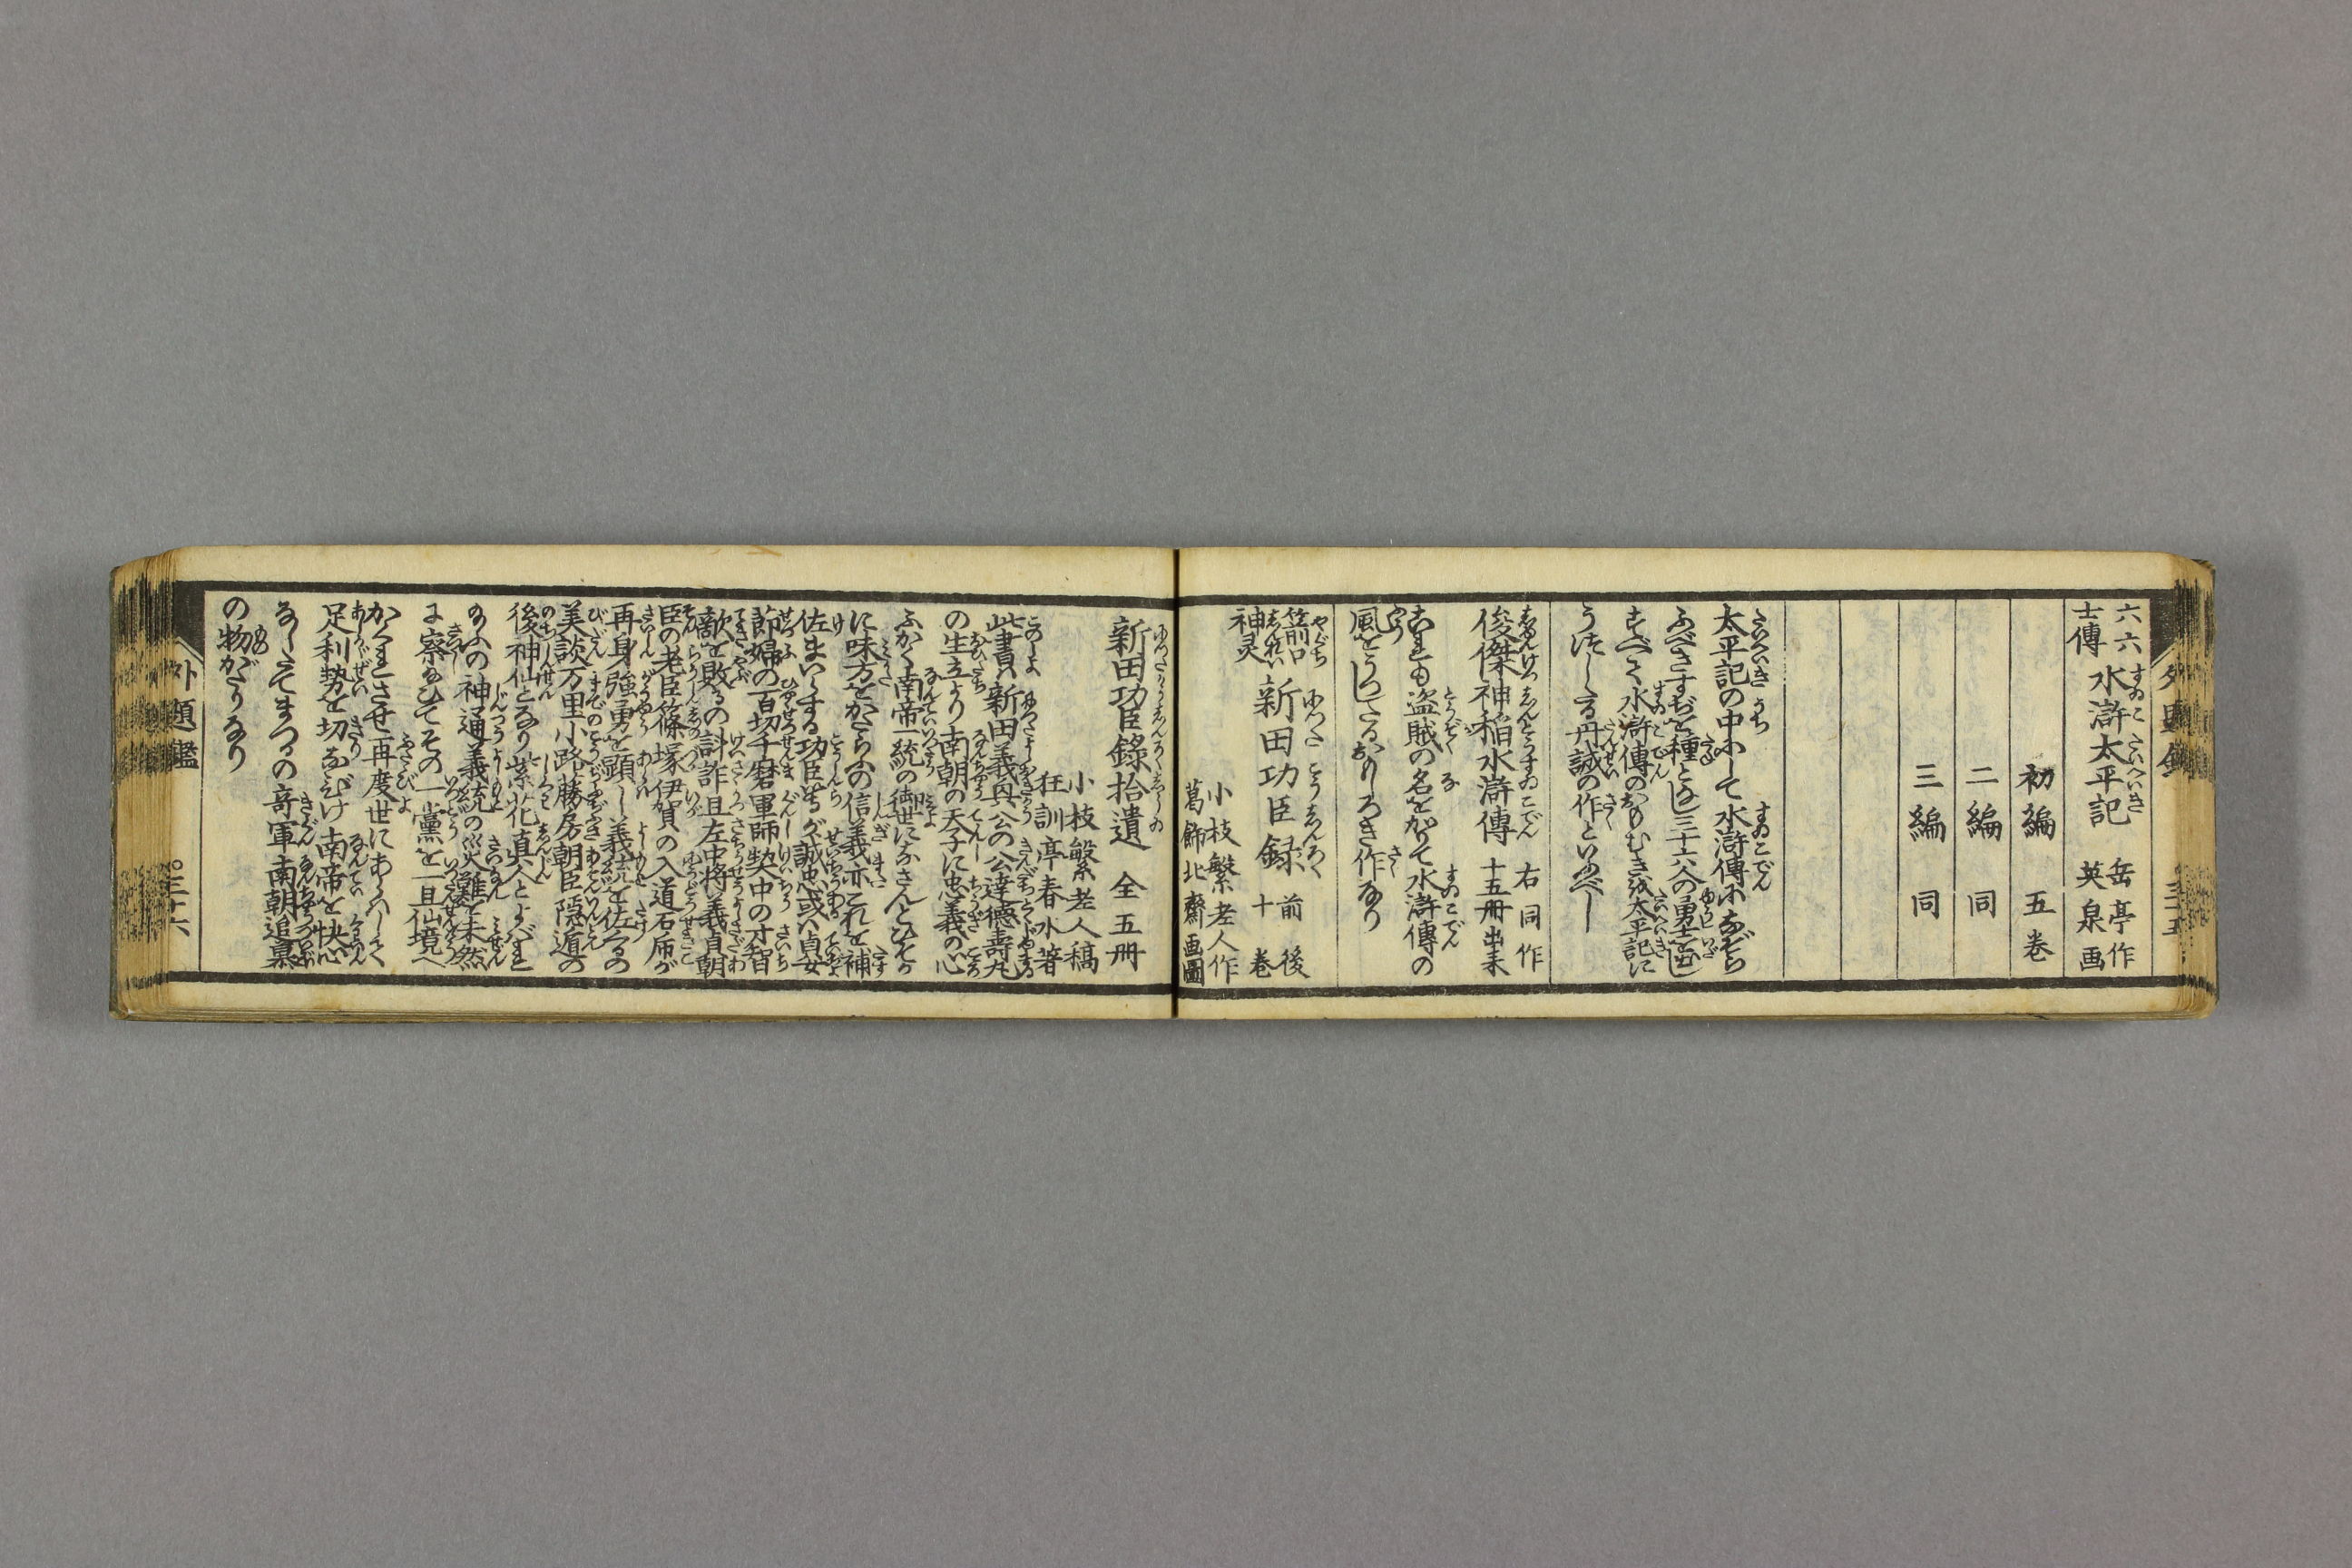 外題鑑 三十五
六六士傳 水滸太平記 岳亭作 英泉画
初編 五巻
二編 同
三編 同
太平記の中にして水滸傳になぞら
ふべきすぢを種となし三十六人の勇士を画し
すべて水滸傳のおもむきを太平記に
うつしたる丹誠の作といふべし
俊傑神稲水滸傳 十五冊出来 右同作
これも盗賊の名をかりて水滸傳の
風をうつしたるおもしろき作なり
箭口神灵 新田功臣録 前後 十巻
小枝繁老人作
葛飾北齋画圖
新田功臣錄拾遺 全五冊
小枝繁老人稿
狂訓亭春水著
此書新田義興公の公達德壽丸
の生立より南朝の天子に忠義の心
ふかく南帝一統の御世になさんとひそか
に味方をかたらふの信義亦これを補
佐まいらする功臣等が誠忠或ハ貞女
節婦の百切千磨軍師契中の才智
敵を敗るの計詐且左中将義貞朝
臣の老臣篠塚伊賀の入道石応が
再身強勇を顕し義統を佐るの
美談万里小路藤房朝臣隠遁の
後神仙となり紫花真人とよバれ
給ふの神通義統の災難を未然
に察給ひてその一黨を一旦仙境へ
かくれさせ再度世にあらハして
足利勢を切なびけ南帝を快心
なしたてまつるの竒軍南朝追慕
の物がたりなり
外題鑑 三十六